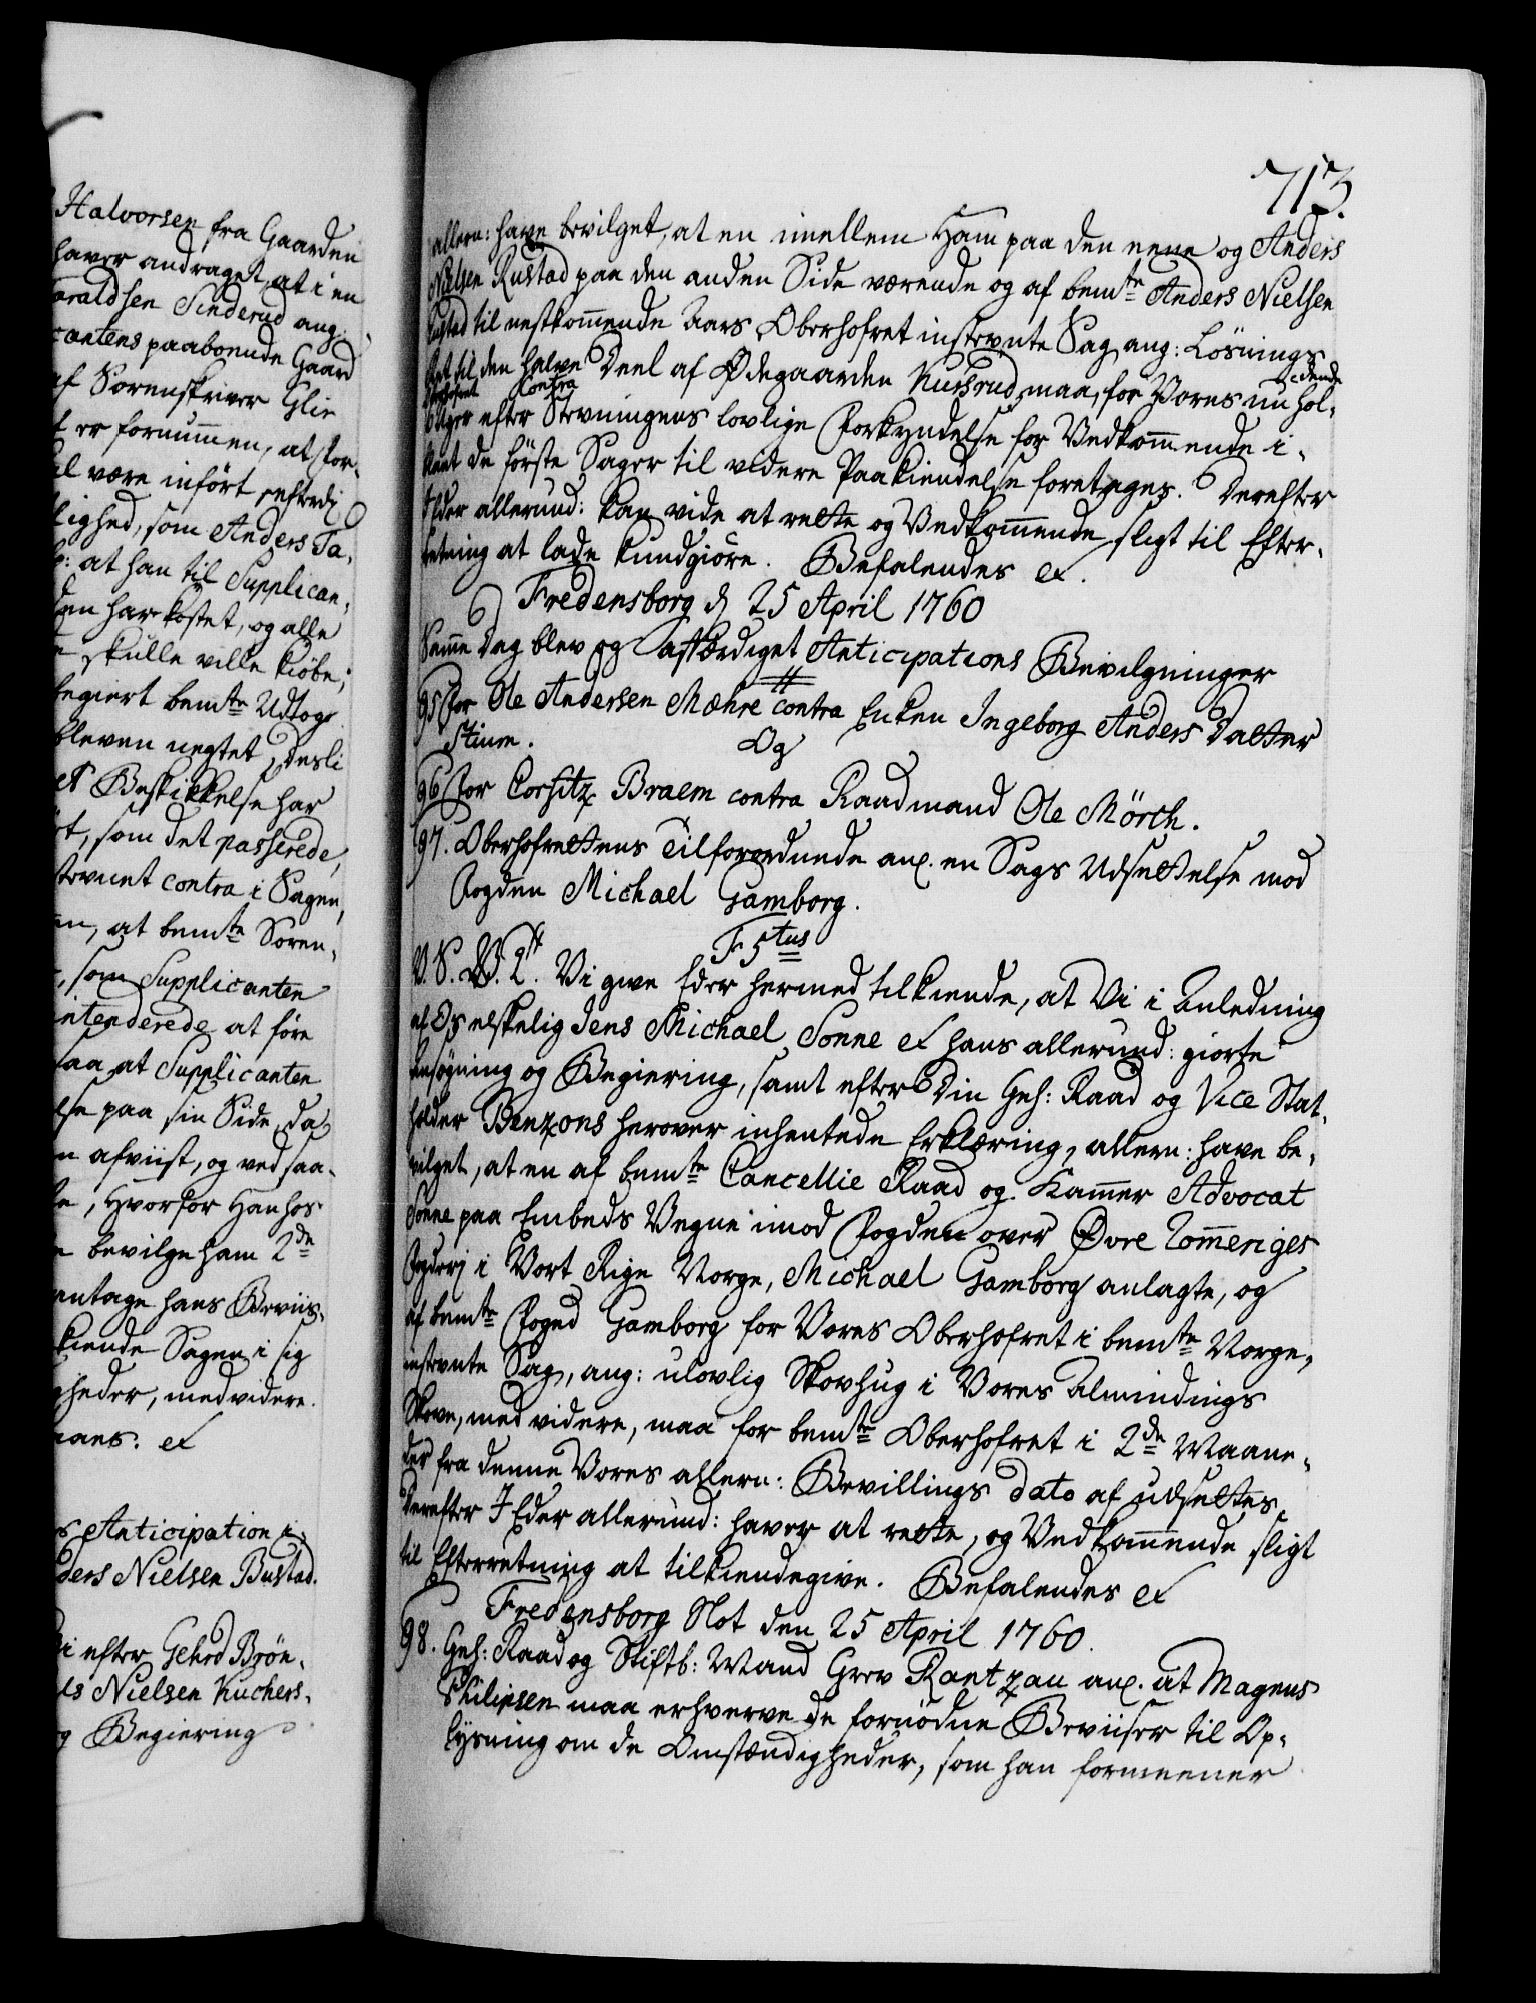 Halvorsen fra Gaarden
haver andraget, at i en
Haraldsen Sinderud ang:
cantens paaboende Gaard
af Sorenskriver Glir
er fornummen, at for-
være inført, efterdi
lighed, som Anders Ta-
at han til Supplican-
den har kostet, og alle
skulle ville kiøbe;
begiert bemte Udtog
bleven negtet, desli
Beskikkelse har
som det passerede,
contra i Sagen,
at bemte Soren-
som Supplicanten
intenderede at føre
saa at Supplicanten
paa sin Side, da
afviist, og ved saa-
Hvorfor Han hos
bevilge ham 2de
antage hans Beviis-
kiende Sagen i sig
gheder, med videre.
Anticipation i
Anders Nielsen Bustad.
efter Gehrd Brøn-
Nielsen Kuchers-
og Begiering
713.
allern: have bevilget, at en imellem Ham paa den eene og Anders
Nielsen Rustad paa den anden Side værende og af bemte Anders Nielsen
Rustad til nestkommende Aars Oberhofret instevnte Sag ang: Løsnings
Ret til den halve Deel af Ødegaarden Kussrud, maa, for Vores nu hol-
dende
contra
efter Stevningens lovlige Forkyndelse for Vedkommende i-
blant de første Sager til videre Paakiendelse foretages. Derefter
I Eder allerund: kan vide at rette og Vedkommende sligt til Efter-
retning at lade kundgiøre. Befalendes &.
Fredensborg d 25 April 1760
Samme Dag blev og afferdiget Anticipations Bevilgninger
95 For Ole Andersen Mæhre contra Enken Ingeborg Anders Datter
Stime.
Og
96 For Corfitz Braem contra Raadmand Ole Mörch.
97. Oberhofrettens Tilforordnede anl. en Sags Udsettelse mod
Fogden Michael Gamborg.
F 5tus
V. S. W. 2st. Vi give Eder hermed tilkiende, at Vi i Anledning
af Os elskelig Jens Michael Sonne & hans allerund: giorte
Ansøgning og Begiering, samt efter Din Geh: Raad og Vice Stat-
holder Benzons herover inhentede Erklæring, allern: have be-
vilget, at en af bemte Cancellie Raad og Kammer Advocat
Sonne paa Embeds Vegne imod Fogden over Øvre Rommeriges
Fogderj i Vort Rige Norge, Michael Gamborg anlagte, og
af bemte Foged Gamborg for Vores Oberhofret i bemte Norge,
instevnte Sag, ang: ulovlig Skovhug i Vores Almindings
Skove, med videre, maa for bemte Oberhofret i 2de Maane-
der fra denne Vores allern: Bevillings dato af udsettes.
Derefter I Eder allerund: haver at rette, og Vedkommende sligt
til Efterretning at tilkiendegive. Befalendes &
Fredensborg Slot den 25 April 1760.
98. Geh: Raad og Stiftb: Mand Grev Rantzau anl. at Magnus
Philipsen maa erhverve de fornødne Beviiser til Op-
lysning om de Omstændigheder, som han formeener